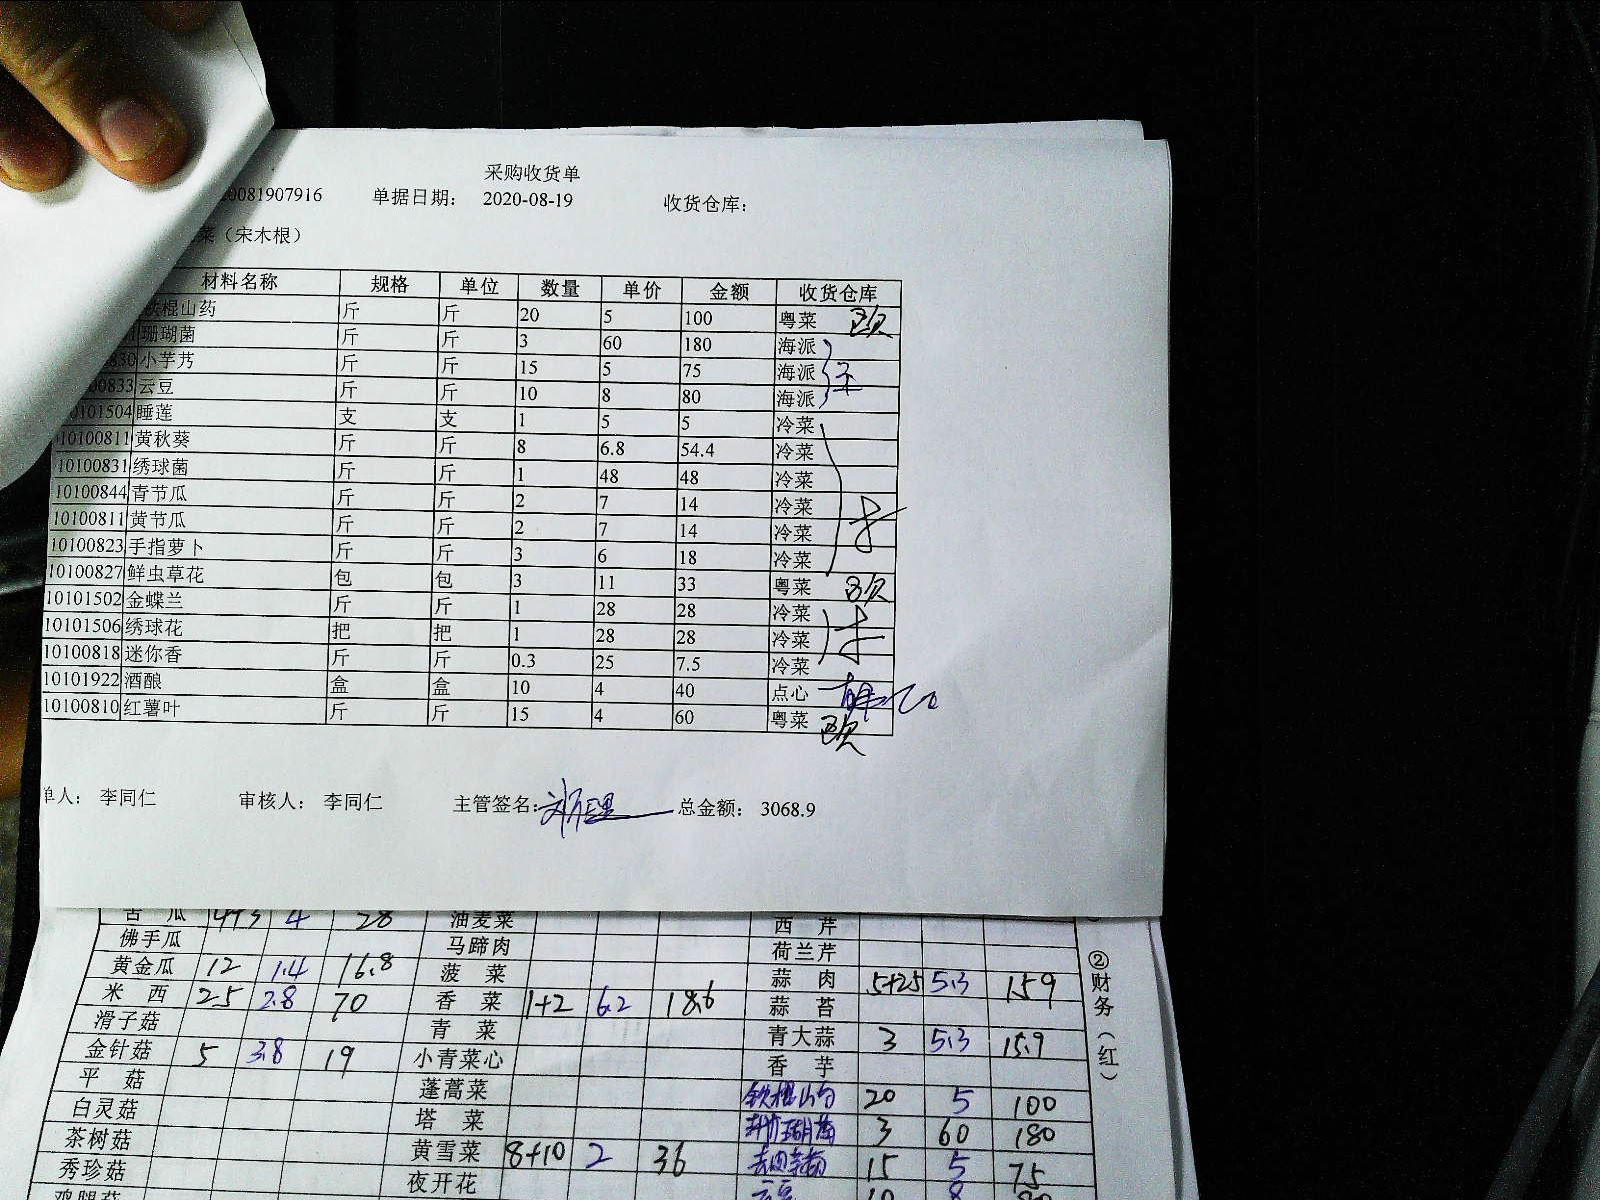 采购收货单
20081907916 单据日期： 2020-08-19 收货仓库：
菜（宋木根）
材料名称 规格 单位 数量 单价 金额 收货仓库
铁棍山药 斤 斤 20 5 100 粤菜 欧
珊瑚菌 斤 斤 3 60 180 海派
830 小芋艿 斤 斤 15 5 75 海派
00833 云豆 斤 斤 10 8 80 海派
0101504 睡莲 支 支 1 5 5 冷菜
10100811 黄秋葵 斤 斤 8 6.8 54.4 冷菜
10100831 绣球菌 斤 斤 1 48 48 冷菜
10100844 青节瓜 斤 斤 2 7 14 冷菜
10100811 黄节瓜 斤 斤 2 7 14 冷菜
10100823 手指萝卜 斤 斤 3 6 18 冷菜
10100827 鲜虫草花 包 包 3 11 33 粤菜 欧
10101502 金蝶兰 斤 斤 1 28 28 冷菜
10101506 绣球花 把 把 1 28 28 冷菜
10100818 迷你香 斤 斤 0.3 25 7.5 冷菜
10101922 酒酿 盒 盒 10 4 40 点心
10100810 红薯叶 斤 斤 15 4 60 粤菜 欧
单人： 李同仁 审核人： 李同仁 主管签名： 总金额： 3068.9
苦瓜 4+3 4 28 油麦菜 西芹
佛手瓜 马蹄肉 荷兰芹
黄金瓜 12 1.4 16.8 菠菜 蒜肉 5+25 5.3 159
米西 25 2.8 70 香菜 1+2 6.2 18.6 蒜苔
滑子菇 青菜 青大蒜 3 5.3 15.9
金针菇 5 3.8 19 小青菜心 香芋
平菇 蓬蒿菜 铁棍山药 20 5 100
白灵菇 塔菜 珊瑚菌 3 60 180
茶树菇 黄雪菜 8+10 2 36 15 5 75
秀珍菇 夜开花 云豆 10 8 80
鸡腿菇
②财务（红）